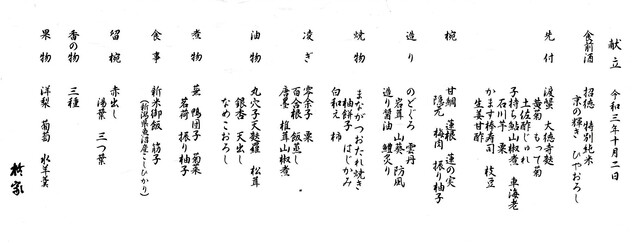 献立 令和三年十月二日
食前酒 招德 特別純米
京の輝き ひやおろし
先付 渡蟹 大徳寺麩
黄菊 もって菊
土佐酢じゅれ
子持ち鮎山椒煮 車海老
石川芋 栗
かます棒寿司 枝豆
生姜甘酢
椀 甘鯛 蓮根 蓮の実
隠元 梅肉 振り柚子
造り のどぐろ 雲丹
岩茸 山葵 防風
造り醤油 鱧炙り
焼物 まながつおたれ焼き
柚餅子 はじかみ
白和え 柿
凌ぎ 零余子 栗
百合根 飯蒸し
唐墨 植茸山椒煮
油物 丸穴子天麩羅 松茸
銀杏 天出し
なめこおろし
煮物 蕪 鴨団子 菊菜
茗荷 振り柚子
食事 新米御飯 筋子
(新潟県魚沼産こしひかり)
留椀 赤出し
湯葉 三つ葉
香の物 三種
果物 洋梨 葡萄 水羊羹